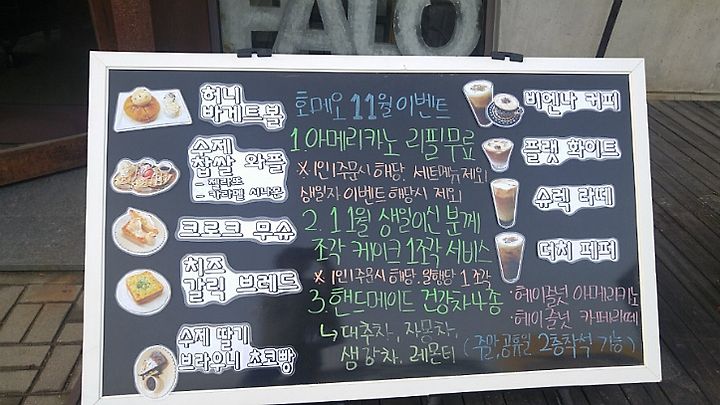 HALO
허니
바게트볼
수제
찹쌀 와플
- 젤라또
- 카라멜 시나몬
크로크 무슈
치즈
갈릭 브레드
수제 딸기
브라우니 초코빵
호메오 11월 이벤트
1 아메리카노 리필무료
※ 1인 1주문시 해당, 세트메뉴 제외
생일자 이벤트 해당시 제외
2. 11월 생일이신 분께
조각 케이크 1조각 서비스
※ 1인 1주문시 해당. 일행당 1조각
3. 핸드메이드 건강차 4종
↳ 대추차, 자몽차,
생강차, 레몬티
비엔나 커피
플랫 화이트
슈렉 라떼
더치 페퍼
· 헤이즐넛 아메리카노
· 헤이즐넛 카페라떼
(주말,공휴일 2층착석 가능)